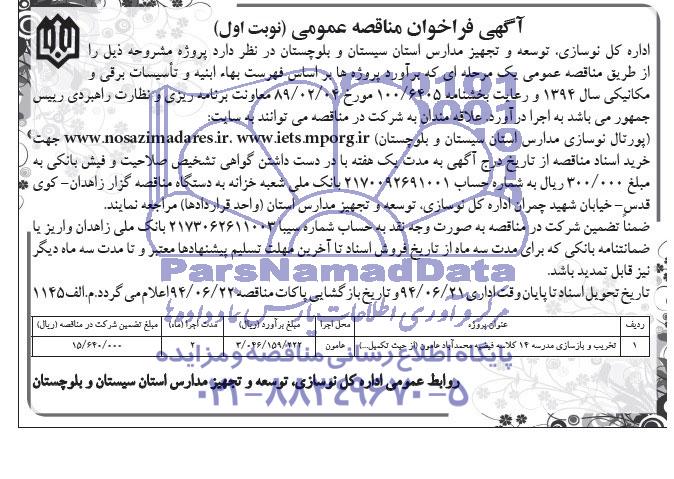 آگهی فراخوان مناقصه عمومی (نوبت اول)
اداره کل نوسازی، توسعه و تجهیز مدارس استان سیستان و بلوچستان در نظر دارد پروژه مشروحه ذیل را
از طریق مناقصه عمومی یک مرحله ای که برآورد پروژه ها بر اساس فهرست بهاء ابنیه و تأسیسات برقی و
مکانیکی سال ۱۳۹۴ و رعایت بخشنامه ۱۰۰/۶۴۰۵ مورخ ۸۹/۰۲/۰۴ معاونت برنامه ریزی و نظارت راهبردی رییس
جمهور می باشد به اجرا درآورد. علاقه مندان به شرکت در مناقصه می توانند به سایت:
(پورتال نوسازی مدارس استان سیستان و بلوچستان) www.nosazimadares.ir. www.iets.mporg.ir جهت
خرید اسناد مناقصه از تاریخ درج آگهی به مدت یک هفته با در دست داشتن گواهی تشخیص صلاحیت و فیش بانکی به
مبلغ ۳۰۰/۰۰۰ ریال به شماره حساب ۲۱۷۰۰۹۲۶۹۱۰۰۱ بانک ملی شعبه خزانه به دستگاه مناقصه گزار زاهدان- کوی
قدس- خیابان شهید چمران اداره کل نوسازی، توسعه و تجهیز مدارس استان (واحد قراردادها) مراجعه نمایند.
ضمناً تضمین شرکت در مناقصه به صورت وجه نقد به حساب شماره سیبا ۲۱۷۳۰۶۲۶۱۱۰۰۳ بانک ملی زاهدان واریز یا
ضمانتنامه بانکی که برای مدت سه ماه از تاریخ فروش اسناد تا آخرین مهلت تسلیم پیشنهادها معتبر و تا مدت سه ماه دیگر
نیز قابل تمدید باشد.
تاریخ تحویل اسناد تا پایان وقت اداری ۹۴/۰۶/۲۱ و تاریخ بازگشایی پاکات مناقصه ۹۴/۰۶/۲۲ اعلام می گردد.م.الف ۱۱۴۵
ردیف عنوان پروژه محل اجرا مبلغ برآورد (ریال) مدت اجرا (ماه) مبلغ تضمین شرکت در مناقصه (ریال)
۱ تخریب و بازسازی مدرسه ۱۴ کلاسه فیضیه محمدآباد هامون (از حیث تکمیل...) هامون ۳/۰۴۶/۱۵۹/۲۲۲ ۲ ۱۵/۶۴۰/۰۰۰
روابط عمومی اداره کل نوسازی، توسعه و تجهیز مدارس استان سیستان و بلوچستان
ParsNamadData
مرکز فرآوری اطلاعات پارس نماد داده ها
پایگاه اطلاع رسانی مناقصه و مزایده
۰۲۱-۸۸۳۴۹۶۷۰-۵